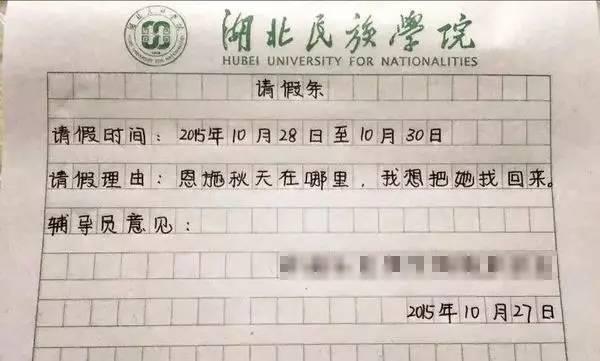 湖北民族学院
HUBEI UNIVERSITY FOR NATIONALITIES
请假条
请假时间：2015年10月28日至10月30日
请假理由：恩施秋天在哪里，我想把她找回来。
辅导员意见：
2015年10月27日